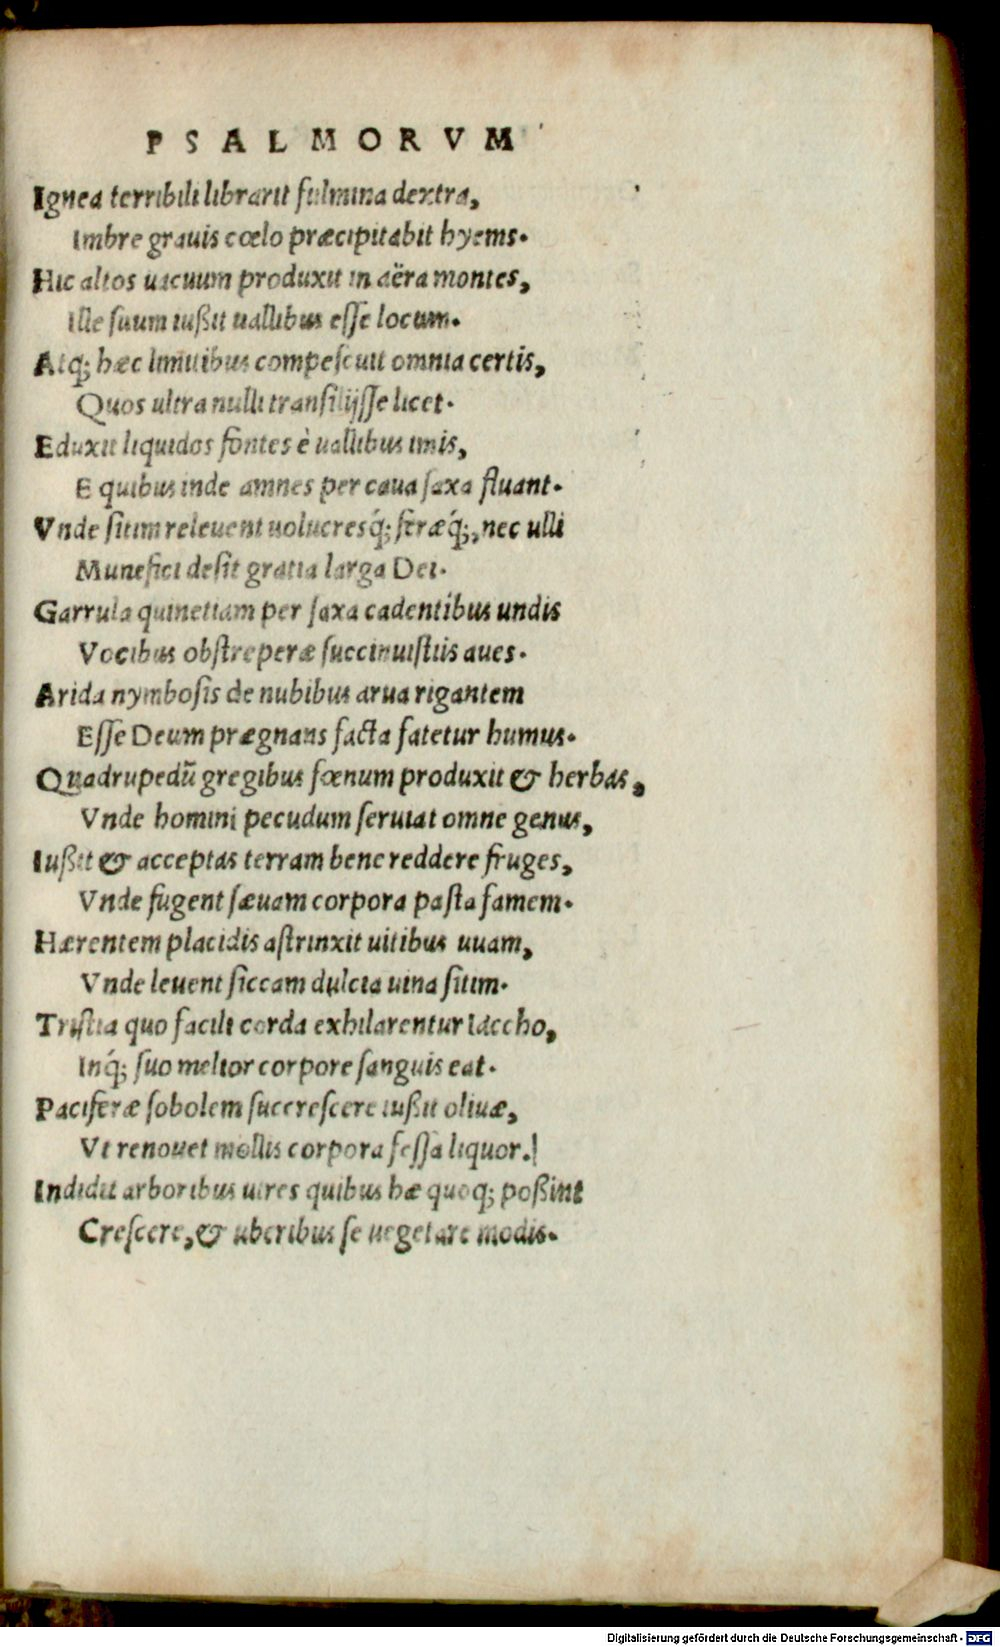 PSALMORVM
Ignea terribili librarit fulmina dextra,
Imbre grauis cœlo præcipitabit hyems.
Hic altos uacuum produxit in aëra montes,
Ille suum iußit uallibus esse locum.
Atq; hæc limitibus compescuit omnia certis,
Quos ultra nulli transilijsse licet.
Eduxit liquidos fontes è uallibus imis,
E quibus inde amnes per caua saxa fluant.
Vnde sitim releuent uolucresq́; feræq́;, nec ulli
Munefici desit gratia larga Dei.
Garrula quinetiam per saxa cadentibus undis
Vocibus obstreperæ succinuistiis aues.
Arida nymbosis de nubibus arua rigantem
Esse Deum prægnans facta fatetur humus.
Quadrupedũ gregibus fœnum produxit & herbas,
Vnde homini pecudum seruiat omne genus,
Iußit & acceptas terram bene reddere fruges,
Vnde fugent sæuam corpora pasta famem.
Hærentem placidis astrinxit uitibus uuam,
Vnde leuent siccam dulcia uina sitim.
Tristia quo facili corda exhilarentur Iaccho,
Inq́; suo melior corpore sanguis eat.
Paciferæ sobolem succrescere iußit oliuæ,
Vt renouet mollis corpora fessa liquor.
Indidit arboribus uires quibus hæ quoq; poßint
Crescere, & uberibus se uegetare modis.
Digitalisierung gefördert durch die Deutsche Forschungsgemeinschaft - DFG